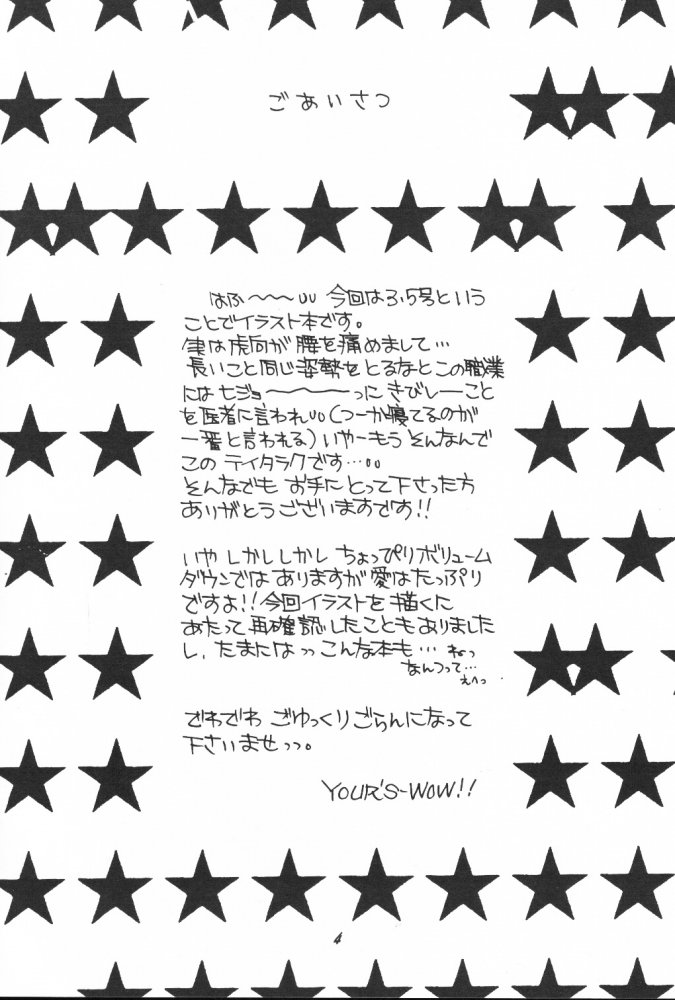 ごあいさつ
はふ〜〜〜υυ 今回は3.5号という
ことでイラスト本です。
実は虎向が腰を痛めまして…
長いこと同じ姿勢をとるなとこの職業
にはヒジョ〜〜〜〜っにきびしーこと
を医者に言われυυ(つーか寝てるのが
一番と言われる)いやーもう そんなんで
この テイタラクです…υυ
そんなでも お手にとって下さった方
ありがとうございますです!!
いや しかししかし ちょっぴりボリューム
ダウンでは ありますが愛はたっぷり
ですよ!! 今回イラストを 描くに
あたって 再確認したこともありました
し、たまにはっっこんな本も… ねっ
なんつって…
えへっ
でわでわ ごゆっくりごらんになって
下さいませっっ。
YOUR'S-WOW!!
4